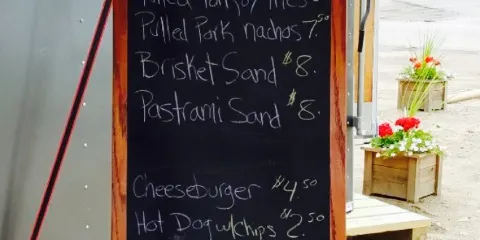 Pulled Pork w/ fries
Pulled Pork nachos 7.50
Brisket Sand $8.
Pastrami Sand $8.
Cheeseburger $4.50
Hot Dog w/chips $2.50